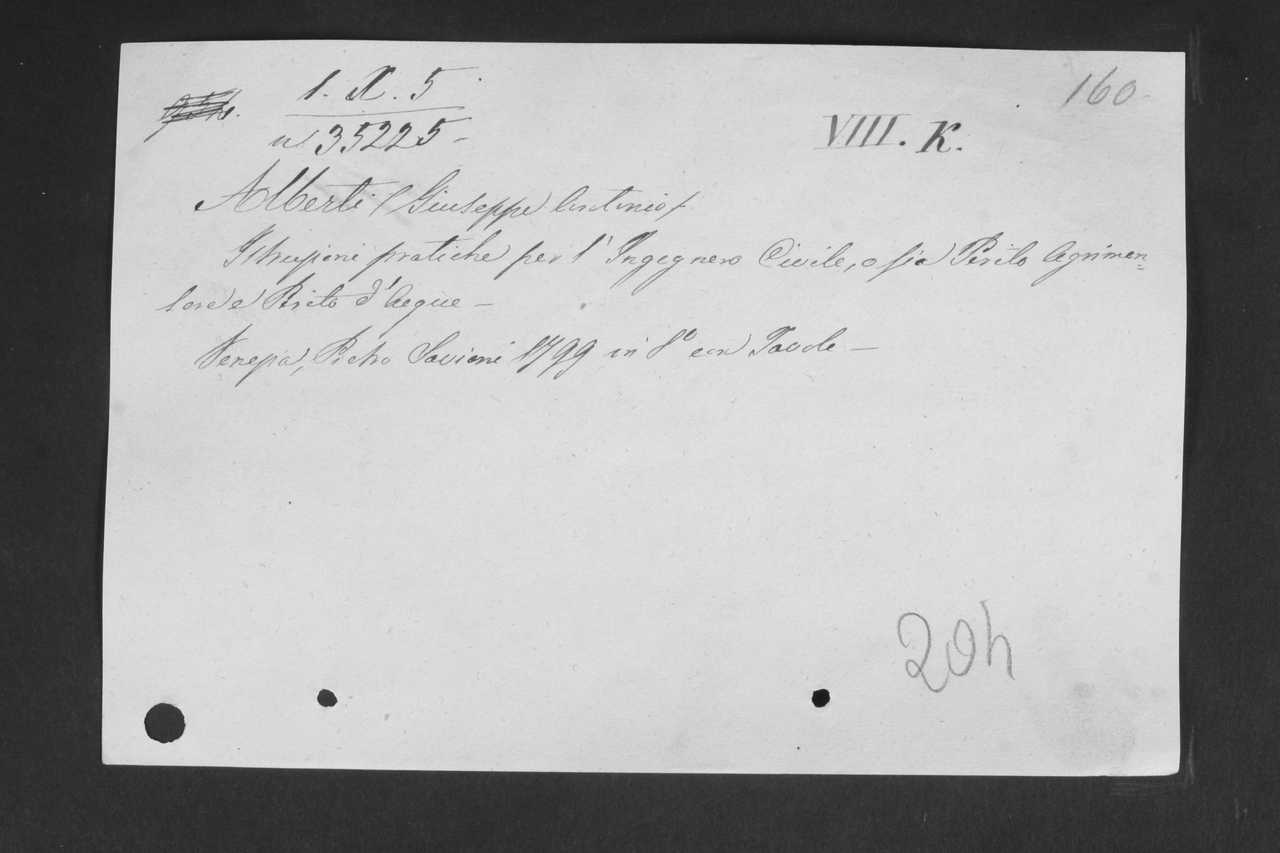 1. X. 5
160
n 35225 -
VIII. K.
Alberti (Giuseppe Antonio)
Istruzioni pratiche per l' Ingegnero Civile, o sia Perito Agrimen=
sore e Perito d'Acque -
Venezia, Pietro Savioni 1799 in 8° con Tavole -
204